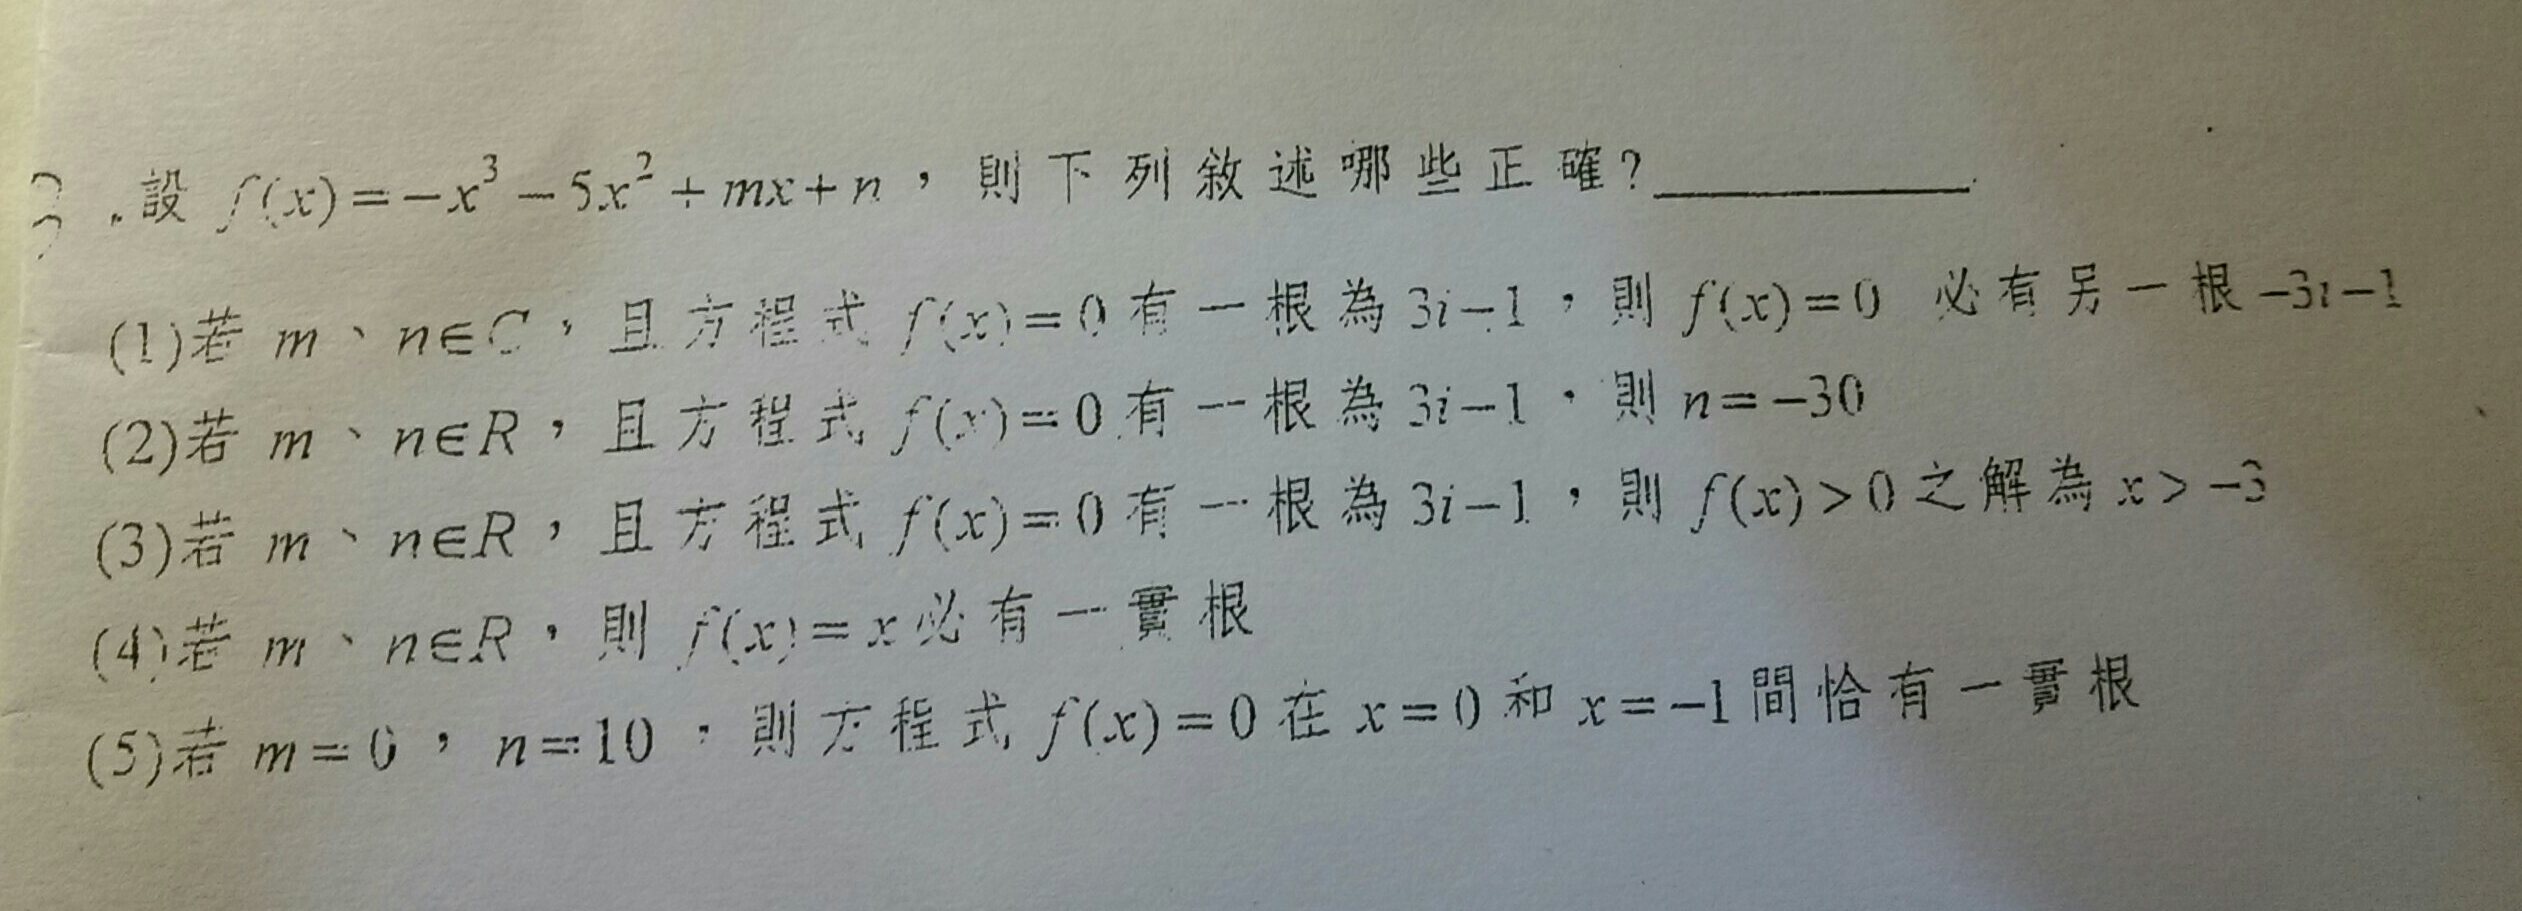 3.設 f(x)=-x³-5x²+mx+n,則下列敘述哪些正確?________
(1)若 m、n∈C,且方程式 f(x)=0有一根為3i-1,則 f(x)=0 必有另一根-3i-1
(2)若 m、n∈R,且方程式 f(x)=0有一根為3i-1,則 n=-30
(3)若 m、n∈R,且方程式 f(x)=0有一根為3i-1,則 f(x)>0之解為x>-3
(4)若 m、n∈R,則 f(x)=x必有一實根
(5)若 m=0,n=10,則方程式 f(x)=0在x=0和x=-1間恰有一實根